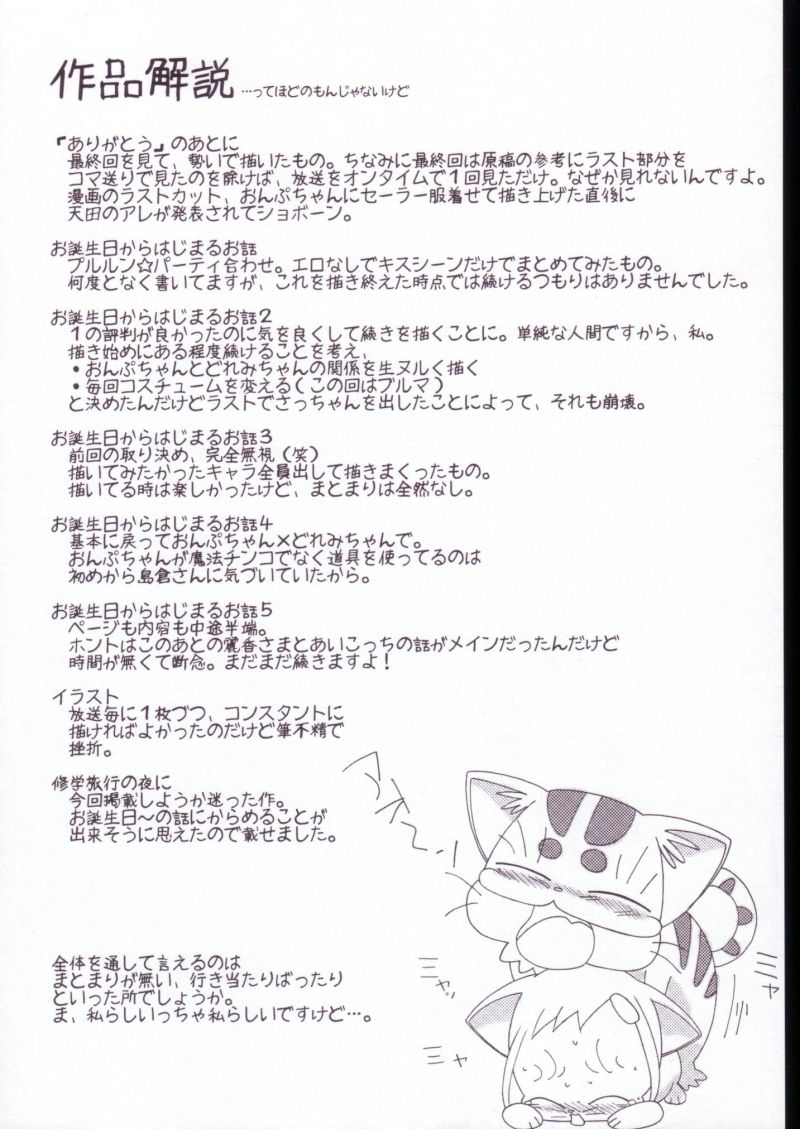 作品解説 …ってほどのもんじゃないけど
『ありがとう』のあとに
最終回を見て、勢いで描いたもの。ちなみに最終回は原稿の参考にラスト部分を
コマ送りで見たのを除けば、放送をオンタイムで1回見ただけ。なぜか見れないんですよ。
漫画のラストカット、おんぷちゃんにセーラー服着せて描き上げた直後に
天田のアレが発表されてショボーン。
お誕生日からはじまるお話
プルルン☆パーティ合わせ。エロなしでキスシーンだけでまとめてみたもの。
何度となく書いてますが、これを描き終えた時点では続けるつもりはありませんでした。
お誕生日からはじまるお話2
1の評判が良かったのに気を良くして続きを描くことに。単純な人間ですから、私。
描き始めにある程度続けることを考え、
•おんぷちゃんとどれみちゃんの関係を生ヌルく描く
•毎回コスチュームを変える(この回はブルマ)
と決めたんだけどラストでさっちゃんを出したことによって、それも崩壊。
お誕生日からはじまるお話3
前回の取り決め、完全無視(笑)
描いてみたかったキャラ全員出して描きまくったもの。
描いてる時は楽しかったけど、まとまりは全然なし。
お誕生日からはじまるお話4
基本に戻っておんぷちゃん×どれみちゃんで。
おんぷちゃんが魔法チンコでなく道具を使ってるのは
初めから島倉さんに気づいていたから。
お誕生日からはじまるお話5
ページも内容も中途半端。
ホントはこのあとの麗香さまとあいこっちの話がメインだったんだけど
時間が無くて断念。まだまだ続きますよ!
イラスト
放送毎に1枚づつ、コンスタントに
描ければよかったのだけど筆不精で
挫折。
修学旅行の夜に
今回掲載しようか迷った作。
お誕生日〜の話にからめることが
出来そうに思えたので載せました。
全体を通して言えるのは
まとまりが無い、行き当たりばったり
といった所でしょうか。
ま、私らしいっちゃ私らしいですけど…。
ニャッ
ニャ
ニャ